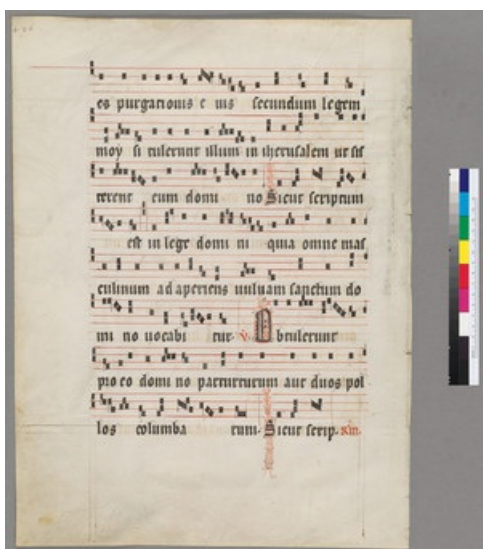 es purgacionis e ius secundum legem
moysi tulerunt illum in iherusalem ut sis
terent eum domi no Sicut scriptum
est in lege domi ni quia omne mas
culinum adaperiens uuluam sanctum do
mi no uocabi tur. V. Obtulerunt
pro eo domi no par turturum aut duos pol
los columba rum. Sicut scrip.